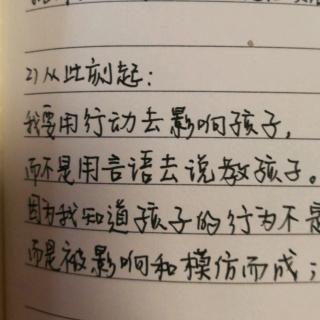 2)从此刻起:
我要用行动去影响孩子,
而不是用言语去说教孩子。
因为我知道孩子的行为不是
而是被影响和模仿而成;